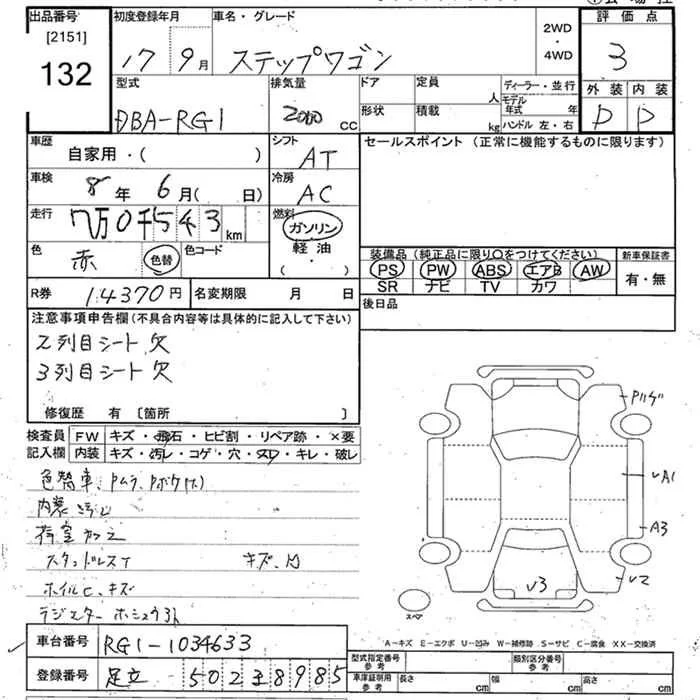 出品番号
[2151]
132
初度登録年月
17 9月
車名・グレード
ステップワゴン
2WD
・
4WD
評価点
3
外装 内装
D D
型式
DBA-RG1
排気量
2000 CC
ドア
形状
定員
人
積載
kg
ディーラー・並行
モデル年式 年
ハンドル 左・右
車歴
自家用・( )
シフト
AT
セールスポイント (正常に機能するものに限ります)
車検
8年 6月( 日)
冷房
AC
走行
7万0千543km
燃料
ガソリン
軽油
( ・ )
色
赤
色替
色コード
装備品(純正品に限り○をつけてください)
新車保証書
PS PW ABS エアB AW
有・無
SR ナビ TV カワ
R券
14370円
名変期限 月 日
後日品
注意事項申告欄(不具合内容等は具体的に記入して下さい)
2列目シート欠
3列目シート欠
修復歴 有 [箇所 ]
検査員
記入欄
FW キズ・飛石・ヒビ割・リペア跡・×要
内装 キズ・汚レ・コゲ・穴・スレ・キレ・破レ
色替車
内装
荷室
スタッドレスT
キズ
ホイルC、キズ
ラジエター
A1
A3
U2
U3
スペア
A-キズ E-エクボ U-凹み W-補修跡 S-サビ C-腐食 XX-交換済
車台番号
RG1-1034633
登録番号
足立 502 3 8985
型式指定番号
参考
類別区分番号
参考
車庫証明用
参考
長さ cm
幅 cm
高さ cm